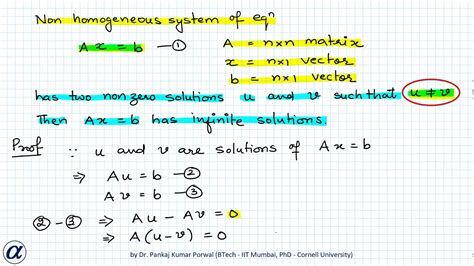 Non homogeneous system of eqⁿ
Ax = b —① A = n×n matrix
x = n×1 vector
b = n×1 vector
has two non zero solutions u and v such that u ≠ v
Then Ax = b has infinite solutions.
Proof ∵ u and v are solutions of Ax = b
⇒ Au = b —②
Av = b —③
② - ③ ⇒ Au - Av = 0
⇒ A(u-v) = 0
α by Dr. Pankaj Kumar Porwal (BTech - IIT Mumbai, PhD - Cornell University)